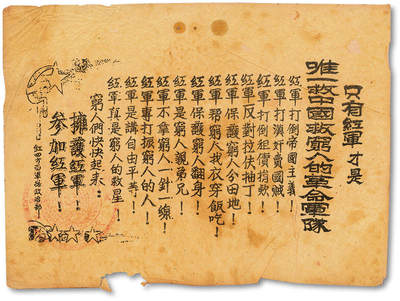 只有紅軍才是
唯一救中國救窮人的革命軍隊
紅軍打倒帝國主義！
紅軍打漢奸賣國賊！
紅軍打倒租債捐款！
紅軍反對拉伕抽丁！
紅軍保護窮人分田地！
紅軍帮窮人找衣穿飯吃！
紅軍保護窮人翻身！
紅軍是窮人親弟兄！
紅軍不拿窮人一針一線！
紅軍專打扳窮人的人！
紅軍是講自由平等！
紅軍真是窮人的救星！
窮人們快快起來：
擁護紅軍！
參加紅軍！
政治部